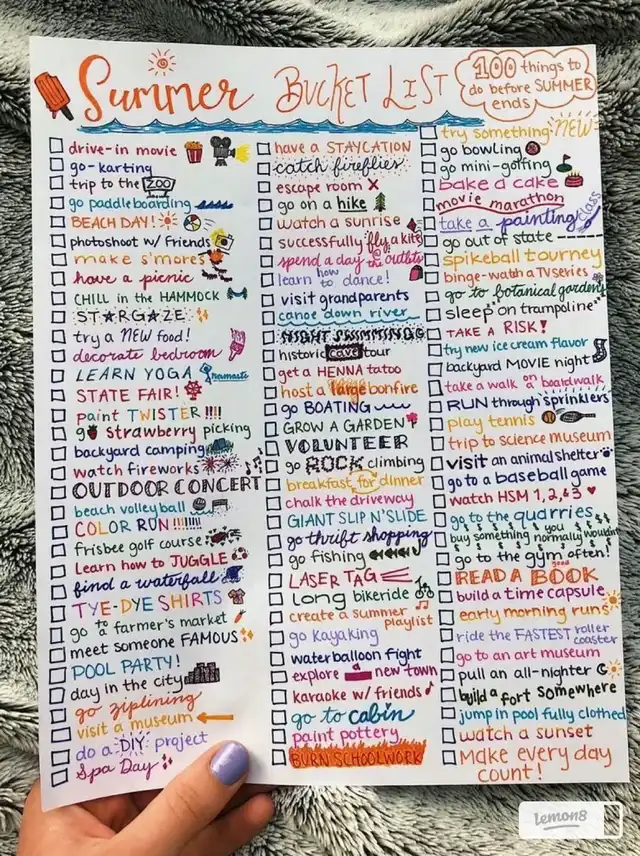 Summer BUCKET LIST
100 things to
do before SUMMER
ends
drive-in movie
go-karting
trip to the ZOO
go paddleboarding
BEACH DAY!
photoshoot w/ friends
make s'mores
have a picnic
CHILL in the HAMMOCK
STARGAZE
try a NEW food!
decorate bedroom
LEARN YOGA namaste
STATE FAIR!
paint TWISTER !!!!
go strawberry picking
backyard camping
watch fireworks
OUTDOOR CONCERT
beach volleyball
COLOR RUN!!!!!!!
frisbee golf course
Learn how to JUGGLE
find a waterfall
TYE-DYE SHIRTS
go to a farmer's market
meet someone FAMOUS
POOL PARTY!
day in the city
go ziplining
visit a museum
do a DIY project
Spa Day
have a STAYCATION
catch fireflies
escape room
go on a hike
watch a sunrise
successfully fly a kite
spend a day @ the outlets
learn how to dance!
visit grandparents
canoe down river
NIGHT SWIMMING
historic cave tour
get a HENNA tattoo
host a large bonfire
go BOATING
GROW A GARDEN
VOLUNTEER
go ROCK climbing
breakfast for dinner
chalk the driveway
GIANT SLIP N'SLIDE
go thrift shopping
go fishing
LASER TAG
long bikeride
create a summer
playlist
go kayaking
waterballoon fight
explore a new town
karaoke w/ friends
go to cabin
paint pottery
BURN SCHOOLWORK
try something NEW
go bowling
go mini-golfing
bake a cake
movie marathon
take a painting class
go out of state
spikeball tourney
binge-watch a TV series
go to botanical gardens
sleep on trampoline
TAKE A RISK!
try new ice cream flavor
backyard MOVIE night
take a walk on boardwalk
RUN through sprinklers
play tennis
trip to science museum
visit an animal shelter
go to a baseball game
watch HSM 1, 2, & 3
go to the quarries
buy something you normally wouldn't
go to the gym often!
READ A good BOOK
build a time capsule
early morning runs
ride the FASTEST roller
coaster
go to an art museum
pull an all-nighter
build a fort somewhere
jump in pool fully clothed
watch a sunset
Make every day
count!
lemon8